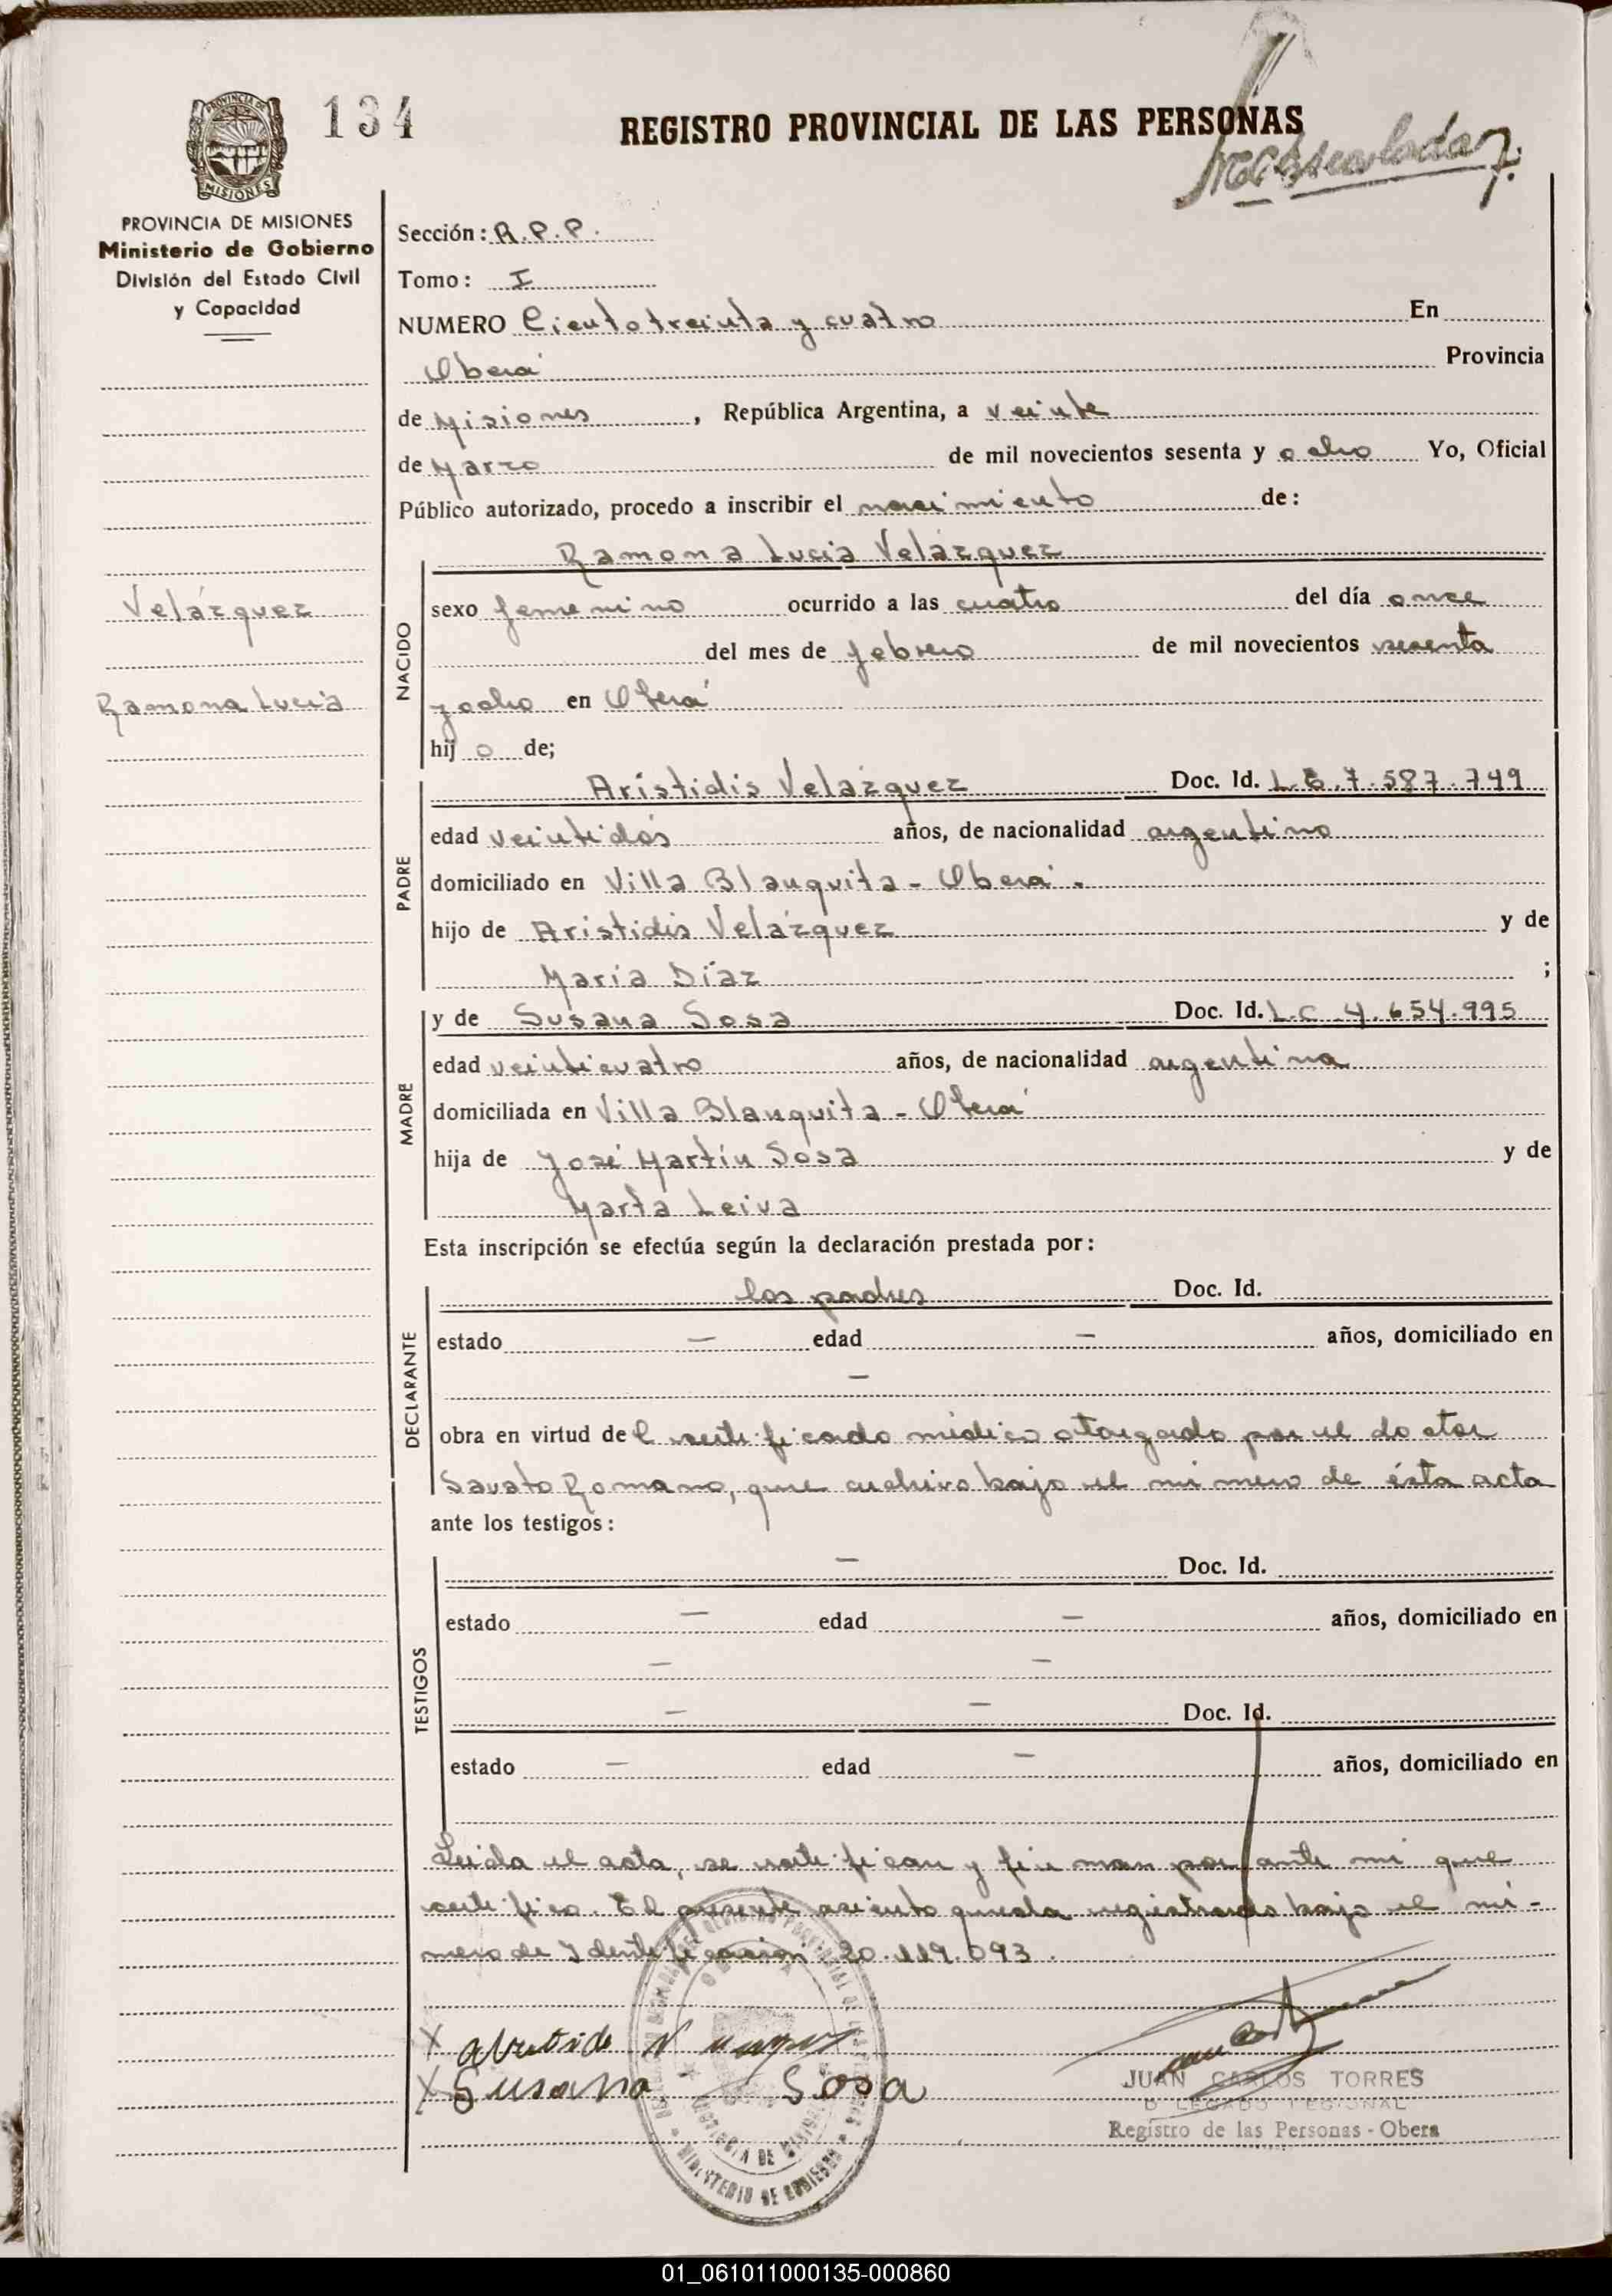 134
REGISTRO PROVINCIAL DE LAS PERSONAS
PROVINCIA DE
MISIONES
PROVINCIA DE MISIONES
Ministerio de Gobierno
División del Estado Civil
y Capacidad
Sección: R.P.P.
Tomo: I
NUMERO Ciento treinta y cuatro En
Oberá Provincia
de Misiones, República Argentina, a veinte
de Marzo de mil novecientos sesenta y ocho Yo, Oficial
Público autorizado, procedo a inscribir el nacimiento de:
Ramona Lucía Velázquez
Velázquez
Ramona Lucía
NACIDO
sexo femenino ocurrido a las cuatro del día once
del mes de febrero de mil novecientos sesenta
y ocho en Oberá
hij o de;
PADRE
Aristidis Velázquez Doc. Id. L.E. 7.587.749
edad veintidós años, de nacionalidad argentino
domiciliado en Villa Blanquita - Oberá.
hijo de Aristidis Velázquez y de
María Díaz ;
MADRE
y de Susana Sosa Doc. Id. L.C. 4.654.995
edad veinticuatro años, de nacionalidad argentina
domiciliada en Villa Blanquita - Oberá
hija de José Martín Sosa y de
Marta Leiva
Esta inscripción se efectúa según la declaración prestada por:
DECLARANTE
los padres Doc. Id.
estado — edad — años, domiciliado en
—
obra en virtud del certificado médico otorgado por el doctor
Savato Romano, que archivo bajo el número de ésta acta
ante los testigos:
TESTIGOS
— Doc. Id.
estado — edad — años, domiciliado en
— —
— — Doc. Id.
estado — edad — años, domiciliado en
Leida el acta, se ratifican y firman por ante mi que
certifico. El presente asiento queda registrado bajo el nú-
mero de Identificación 20.119.093.
X
X Susana Sosa
MINISTERIO DE GOBIERNO
JUAN CARLOS TORRES
DELEGADO REGIONAL
Registro de las Personas - Obera
01_061011000135-000860